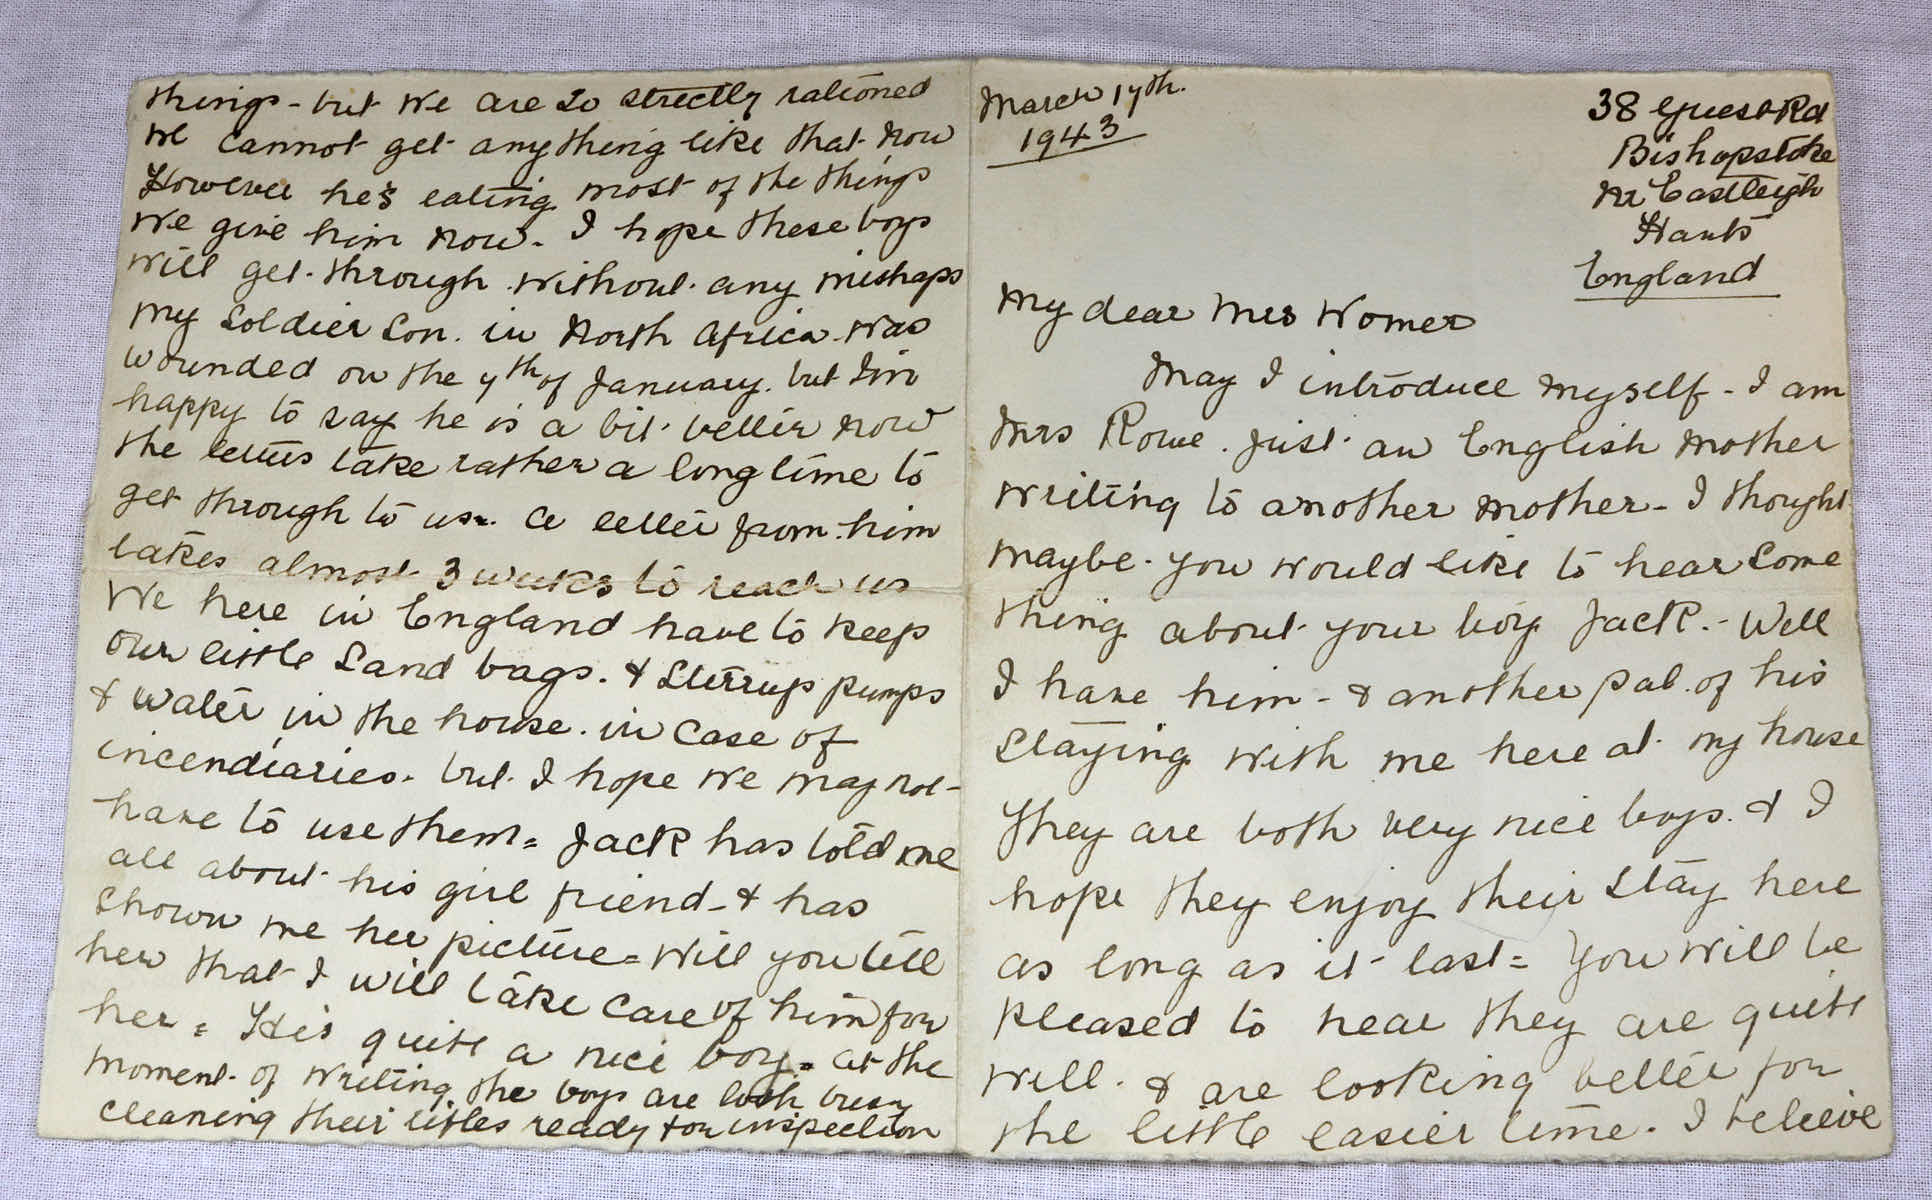 March 17th.
1943
38 Guest Rd
Bishopstoke
Nr Eastleigh
Hants
England
My dear Mrs Womer
May I introduce myself - I am
Mrs Rowe. Just an English Mother
writing to another Mother - I thought
maybe you would like to hear some
thing about your boy Jack. - Well
I have him - & another pal of his
staying with me here at my house
They are both very nice boys. & I
hope they enjoy their stay here
as long as it last = You will be
pleased to hear they are quite
well. & are looking better for
the little easier time. I believe
things - but we are so strectly rationed
we cannot get anything like that now
However he's eating most of the things
we give him now - I hope these boys
will get through without any mishaps
My Soldier Son. in North Africa was
wounded on the 7th of January. but I'm
happy to say he is a bit better now
the letters take rather a long time to
get through to us. a letter from him
takes almost 3 weeks to reach us
We here in England have to keep
our little Sand bags. & Stirrup pumps
& water in the house. in case of
incendiaries. but I hope we may not
have to use them = Jack has told me
all about his girl friend - & has
shown me her picture = Will you tell
her that I will take care of him for
her = He's quite a nice boy = at the
moment of writing the boys are both busy
cleaning their rifles ready for inspection